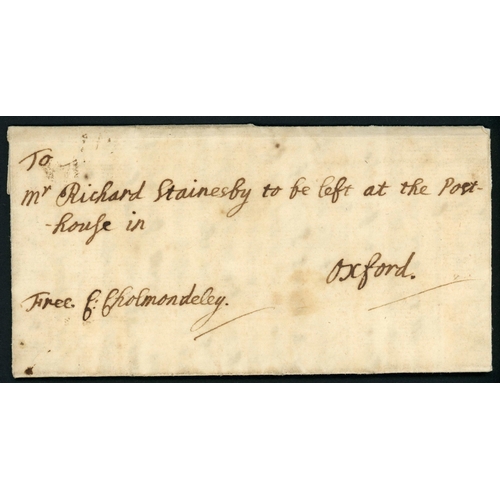 To
Mr Richard Stainesby to be left at the Post-
-house in
Oxford.
Free. C. Cholmondeley.